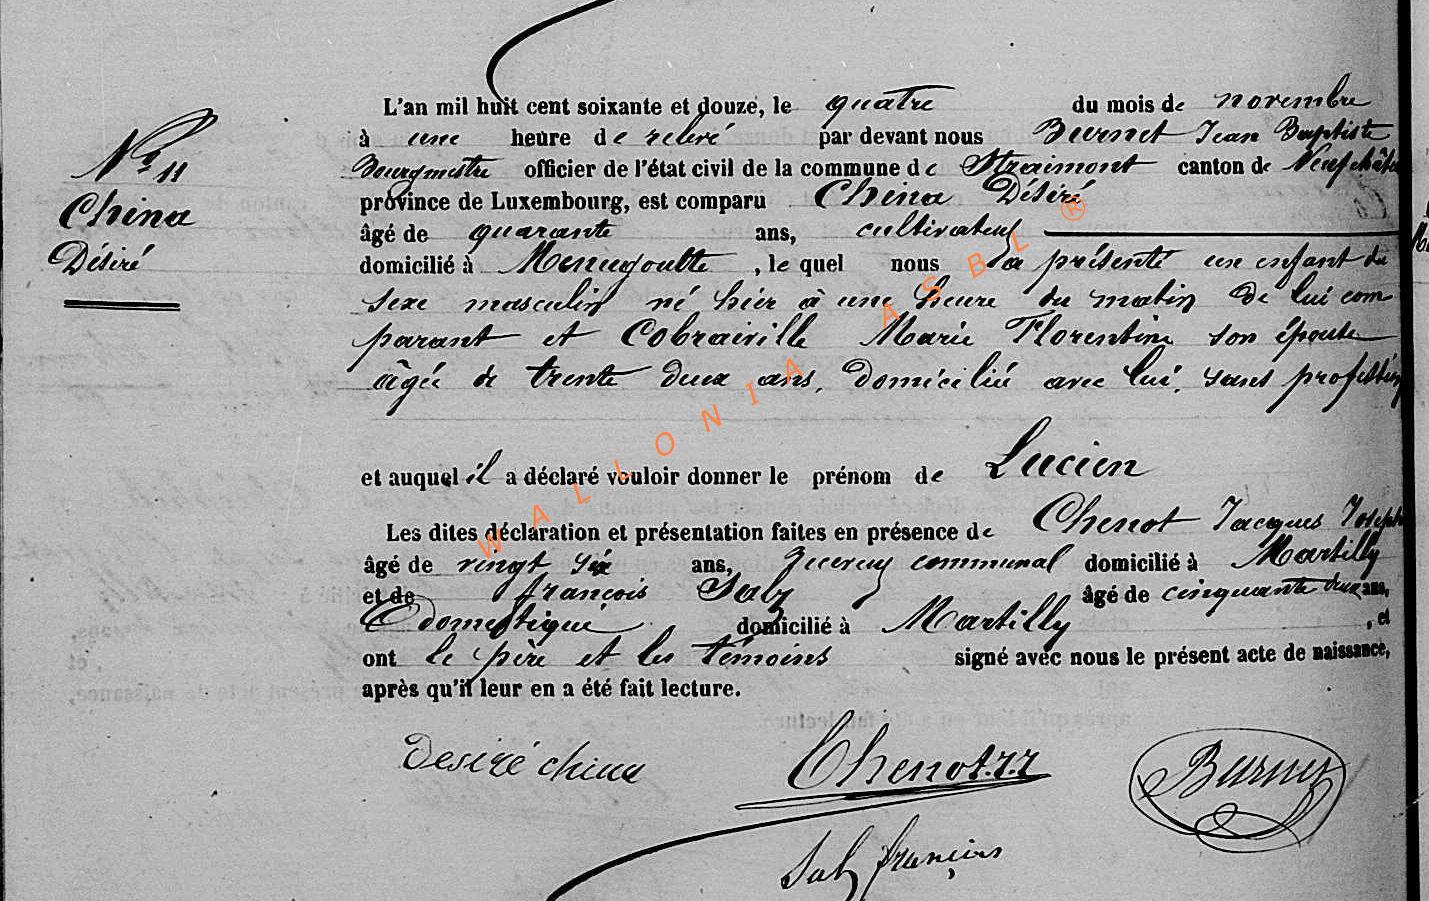 L'an mil huit cent soixante et douze, le quatre du mois de novembre
à une heure de relevé par devant nous Burnet Jean Baptiste
Bourgmestre officier de l'état civil de la commune de Straimont canton de Neufchâte
province de Luxembourg, est comparu China Désiré
âgé de quarante ans, cultivateur
domicilié à Menugoutte, le quel nous a présenté un enfant du
sexe masculin né hier à une heure du matin de lui com
parant et Cobraiville Marie Florentine son épouse
âgée de trente deux ans, domiciliée avec lui, sans profession
et auquel il a déclaré vouloir donner le prénom de Lucien
Les dites déclaration et présentation faites en présence de Chenot Jacques Joseph
âgé de vingt six ans, receveur communal domicilié à Martilly
et de françois Salz âgé de cinquante deux ans,
domestique domicilié à Martilly, et
ont le père et les témoins signé avec nous le présent acte de naissance,
après qu'il leur en a été fait lecture.
Desiré china
Chenot.J.J
Burnet
Salz françois
N° 11
China
Désiré
WALLONIA ASBL ®